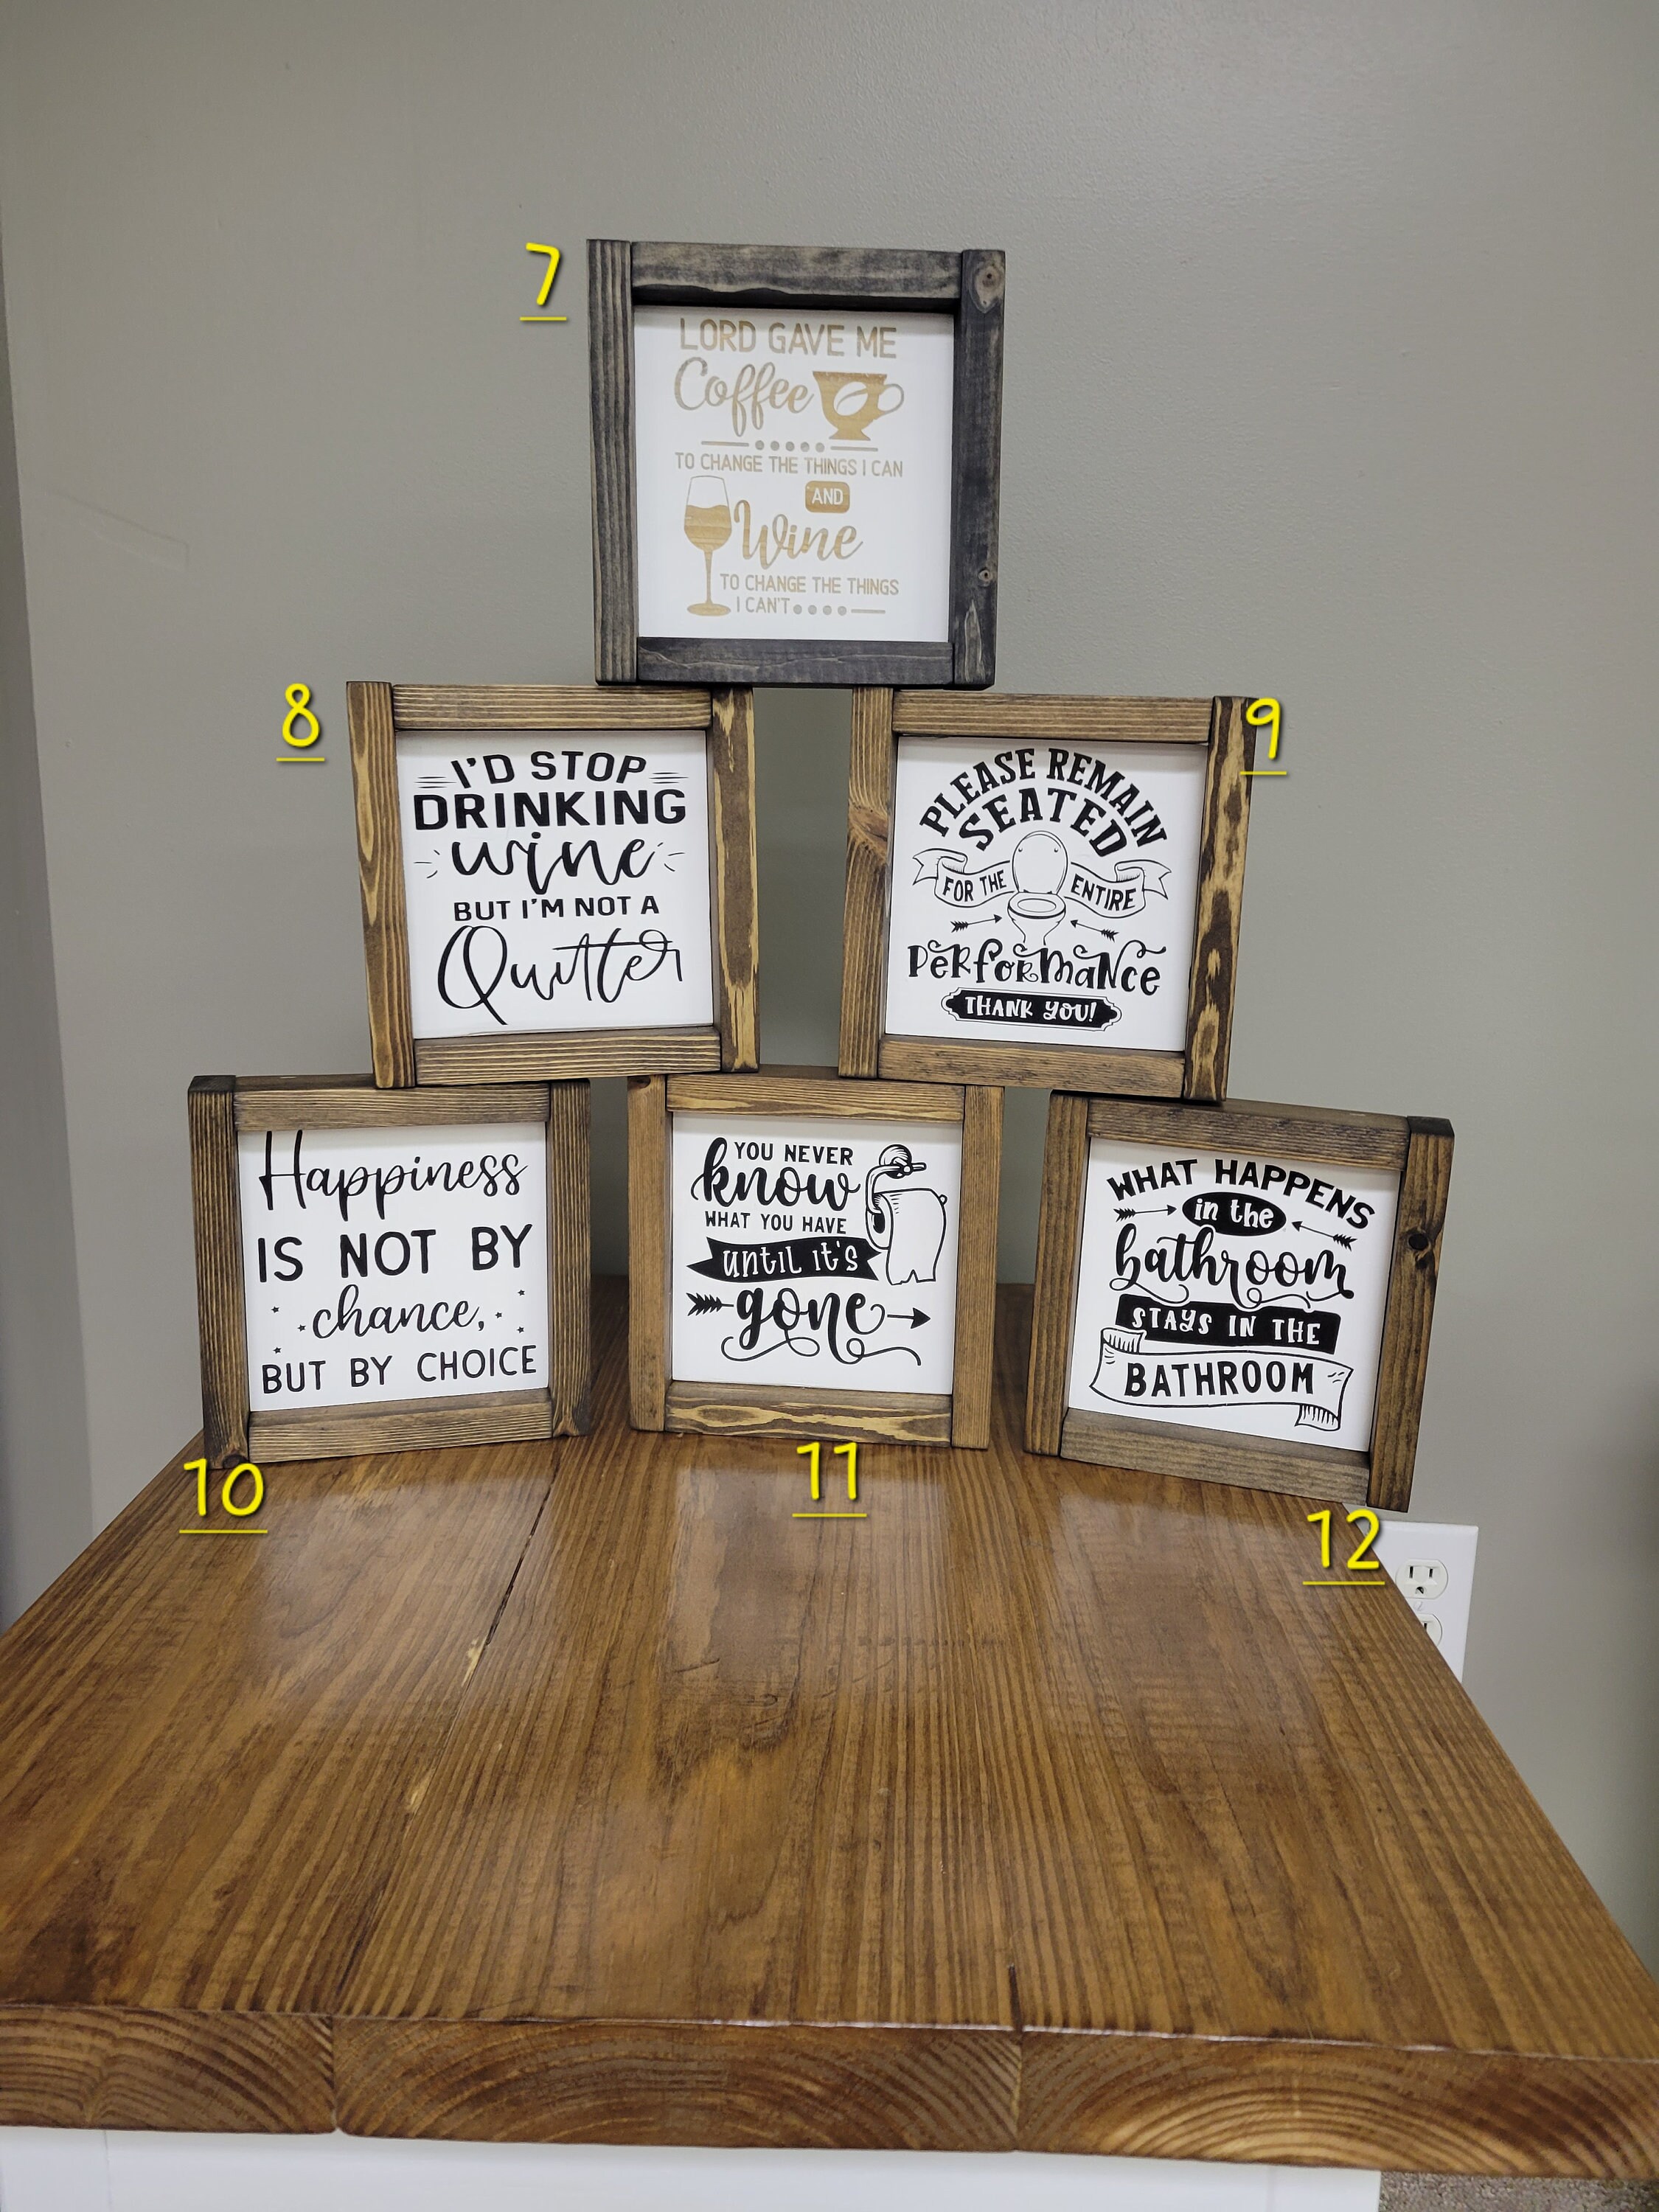 7
LORD GAVE ME
Coffee
TO CHANGE THE THINGS I CAN
AND
Wine
TO CHANGE THE THINGS
I CAN'T
8
I'D STOP
DRINKING
wine
BUT I'M NOT A
Quitter
9
PLEASE REMAIN
SEATED
FOR THE ENTIRE
PERFORMANCE
THANK YOU!
10
Happiness
IS NOT BY
chance,
BUT BY CHOICE
11
YOU NEVER
know
WHAT YOU HAVE
until it's
gone
12
WHAT HAPPENS
in the
bathroom
STAYS IN THE
BATHROOM